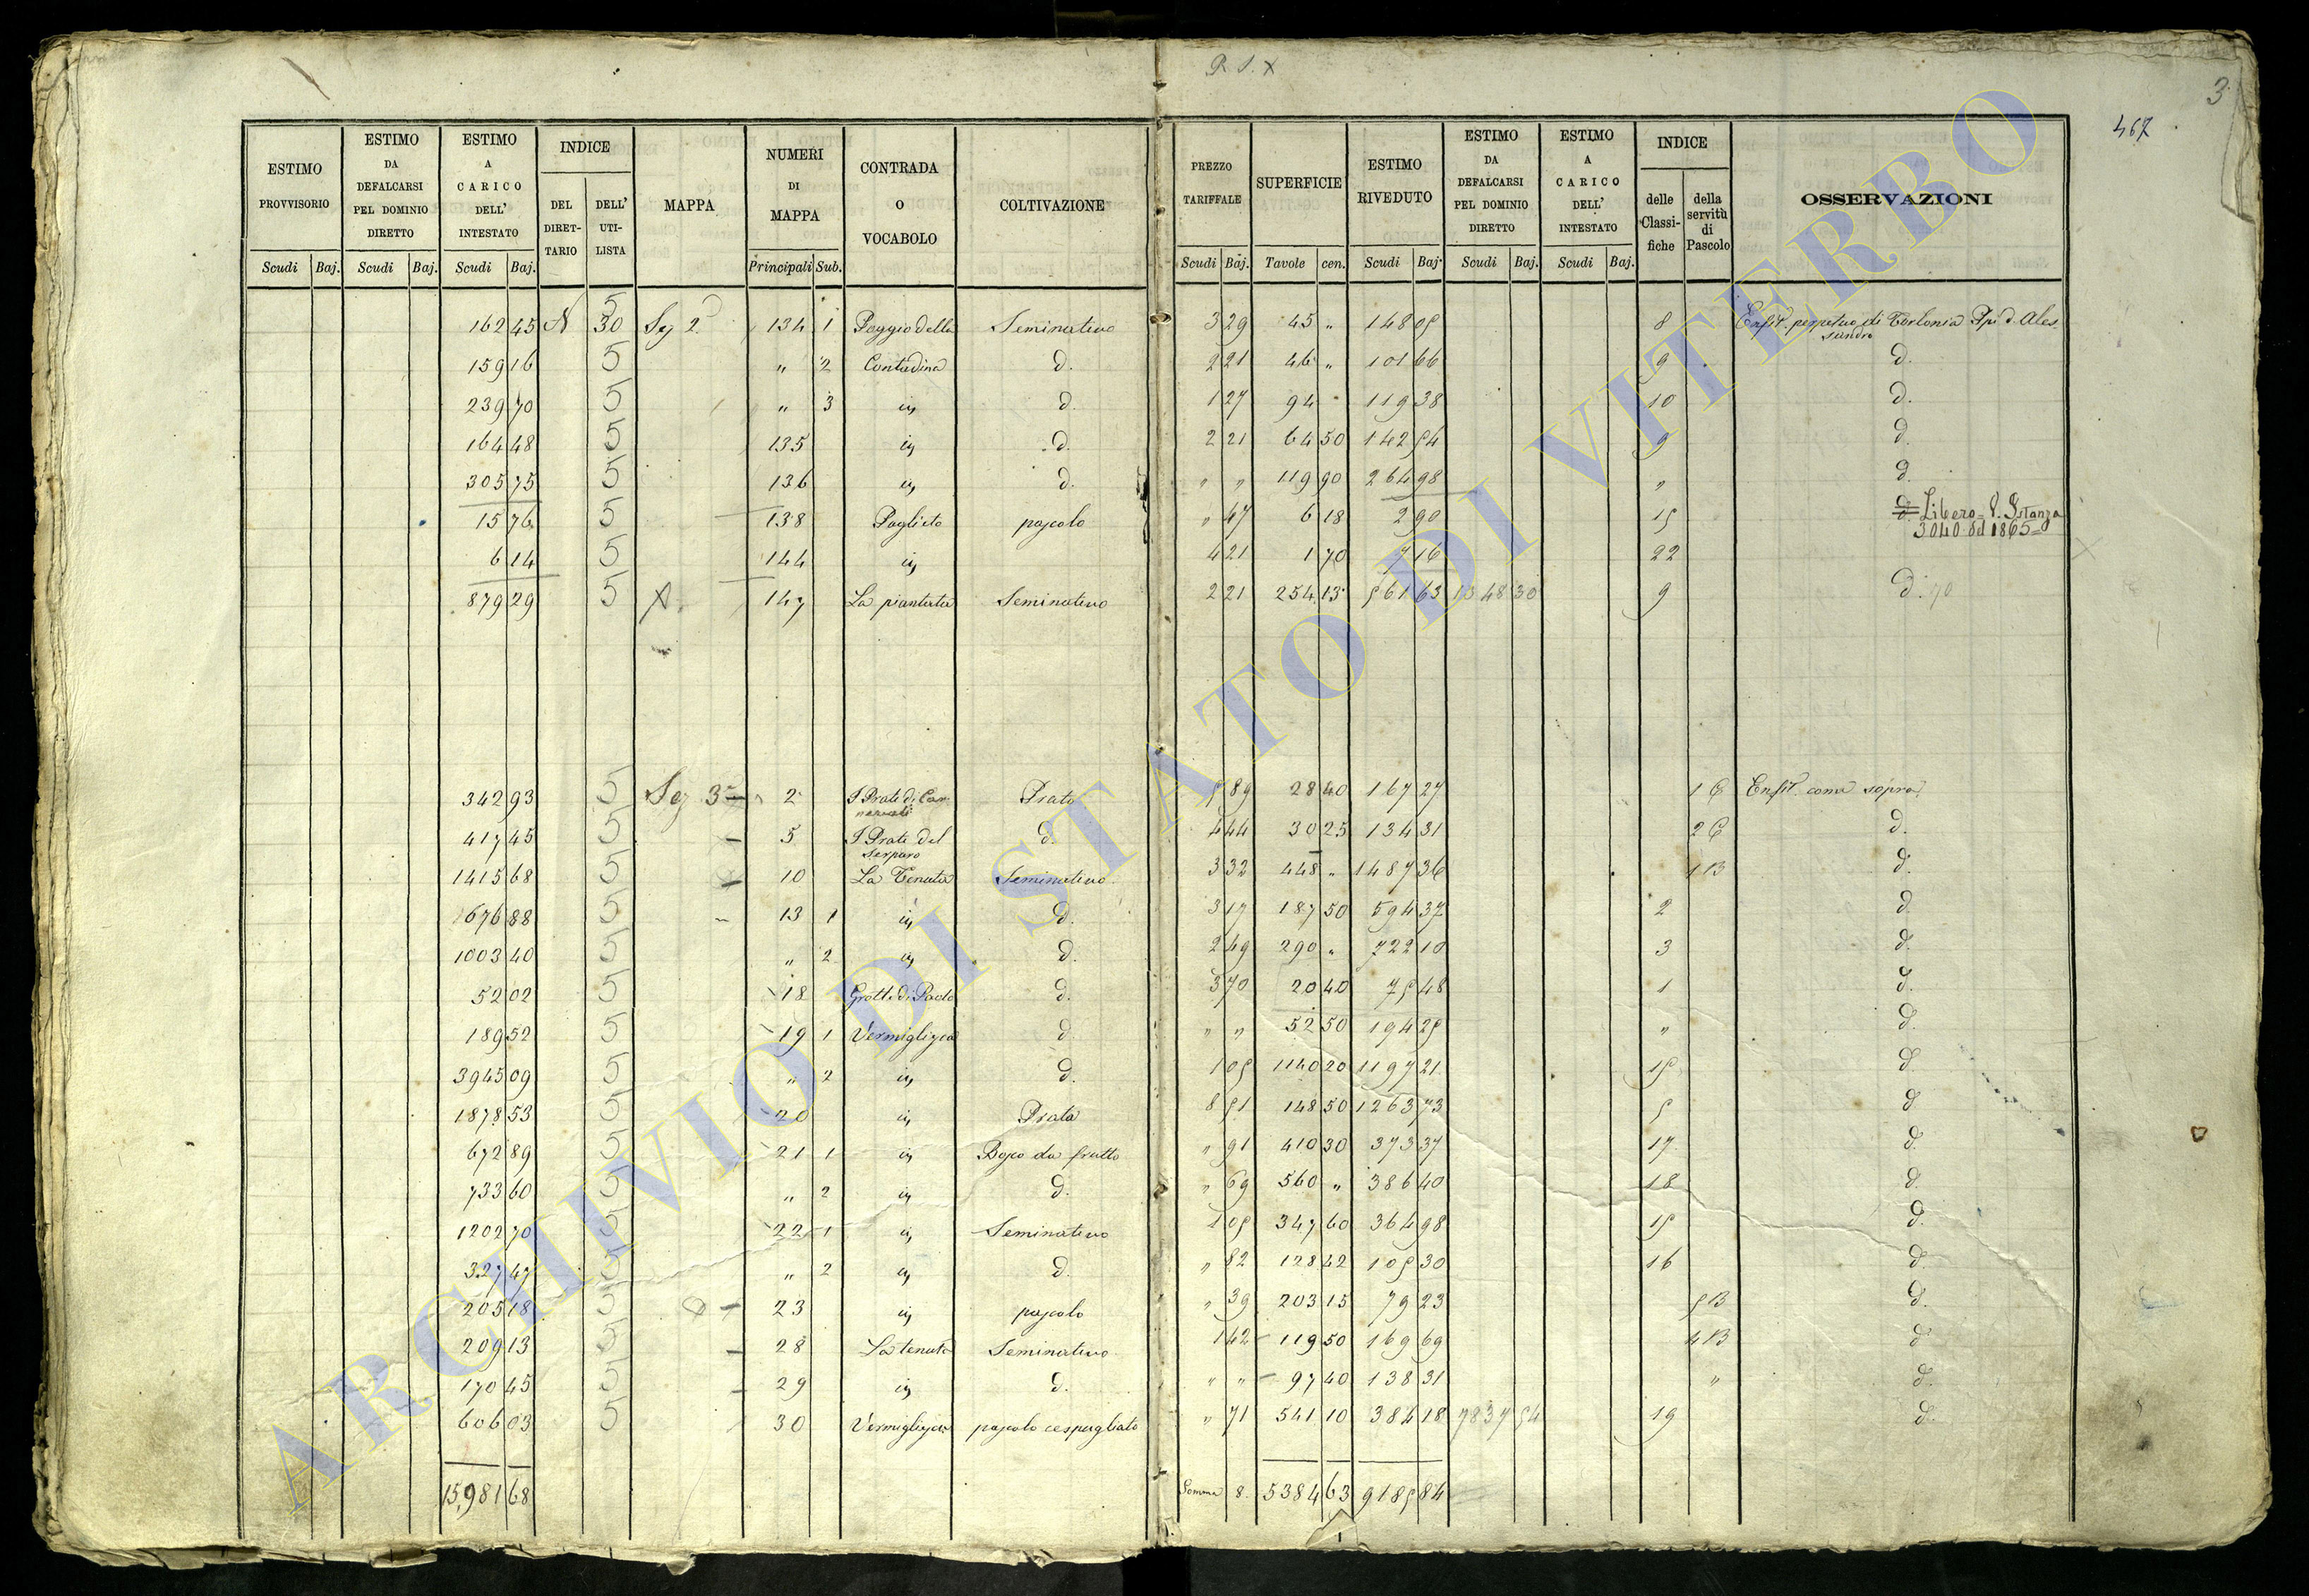 P. S. X
3
467
ESTIMO PROVVISORIO | ESTIMO DA DEFALCARSI PEL DOMINIO DIRETTO | ESTIMO A CARICO DELL' INTESTATO | INDICE DEL DIRETTARIO | DELL' UTILISTA | MAPPA | NUMERI DI MAPPA | CONTRADA O VOCABOLO | COLTIVAZIONE | PREZZO TARIFFALE | SUPERFICIE | ESTIMO RIVEDUTO | ESTIMO DA DEFALCARSI PEL DOMINIO DIRETTO | ESTIMO A CARICO DELL' INTESTATO | INDICE delle Classifiche | della servitù di Pascolo | OSSERVAZIONI
Scudi Baj. | Scudi Baj. | Scudi Baj. | Principali Sub. | Scudi Baj. | Tavole cen. | Scudi Baj. | Scudi Baj. | Scudi Baj.
162 45 N 5 30 Sez 2ª 134 1 Poggio della Seminativo 3 29 45 " 148 05 8 Enfit. perpetuo di Torlonia Ppe d. Ales
sandro
159 16 5 " 2 Contadina d. 2 21 46 " 101 66 9 d.
239 70 5 " 3 id d. 1 27 94 " 119 38 10 d.
164 48 5 135 id d. 2 21 64 50 142 54 9 d.
305 75 5 136 id d. " " 119 90 264 98 " d.
15 76 5 138 Paglieto pascolo " 47 6 18 2 90 15 d. Libero = V. Istanza
3040 del 1865 =
6 14 5 144 id 4 21 1 70 7 16 22
879 29 5 X 147 La piantata Seminativo 2 21 254 13 561 63 1348 30 9 d.
342 93 5 Sez 3ª 2 I Prati di Car Prato 5 89 28 40 167 27 1 C Enfit. come sopra
417 45 5 5 I Prati del d. 4 44 30 25 134 31 2 C d.
Serparo
1415 68 5 10 La Tenuta Seminativo 3 32 448 " 1487 36 1 B d.
676 88 5 13 1 id d. 3 17 187 50 594 37 2 d.
1003 40 5 " 2 id d. 2 49 290 " 722 10 3 d.
52 02 5 18 Grotte di Paolo d. 3 70 20 40 75 48 1 d.
189 52 5 19 1 Vermigliera d. " " 52 50 194 25 " d.
3945 09 5 " 2 id d. 1 05 1140 20 1197 21 15 d.
1878 53 5 20 id Prato 8 51 148 50 1263 73 5 d
672 89 5 21 1 id Bosco da frutto " 91 410 30 373 37 17 d.
733 60 5 " 2 id d. " 69 560 " 386 40 18 d.
1202 70 5 22 1 id Seminativo 1 05 347 60 364 98 15 d.
327 47 5 " 2 id d. " 82 128 42 105 30 16 d
205 18 5 23 id pascolo " 39 203 15 79 23 5 B d.
209 13 5 28 La tenuta Seminativo 1 42 119 50 169 69 4 B d
170 45 5 29 id d. " " 97 40 138 31 " d.
606 03 5 30 Vermigliera pascolo cespugliato " 71 541 10 384 18 7837 54 19 d.
15,981 68 Somma 8. 5384 63 9185 84
ARCHIVIO DI STATO DI VITERBO